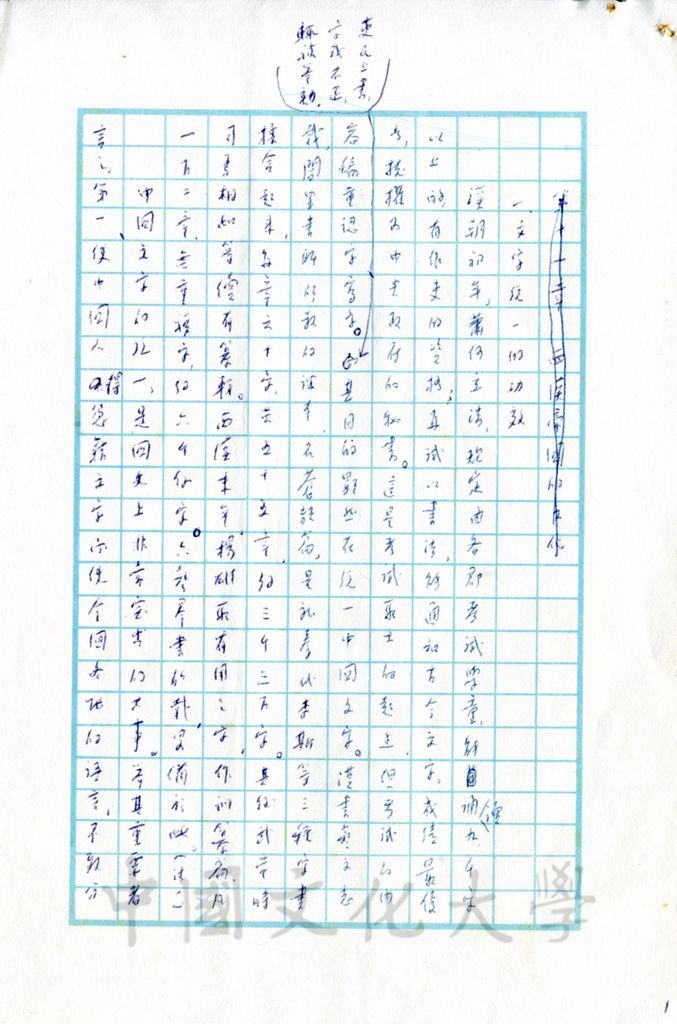 吏民上書,
字或不正,
輒被舉劾。
第十一章 西漢帝國的文化
一、文字統一的功效
漢朝初年,蕭何立法,規定由各郡考試學童,能諷(讀)九千字
以上的有作吏的資格;再試以書法,能通知古今文字,成績最優
者,擢為中央政府的秘書。這是考試取士的起點,但考試的內
容偏重認字寫字。其目的顯然在統一中國文字。漢書藝文志
載,閭里書師所教的課本,名蒼頡篇,是就秦代李斯等三種字書
揉合起來,每章六十字,共五十五章,約三千三百字。其後武帝時
司馬相如等續有纂輯。西漢末年,揚雄取有用之字,作訓纂篇,凡
一百二章,無重複字,約六千餘字。六藝羣書所載,畧備於此。(註一)
中國文字的統一,是國史上非常重大的大事。舉其重要者
言之,第一、使中國人得憑藉文字而使全國各地的語言,不致分
中國文化大學
1